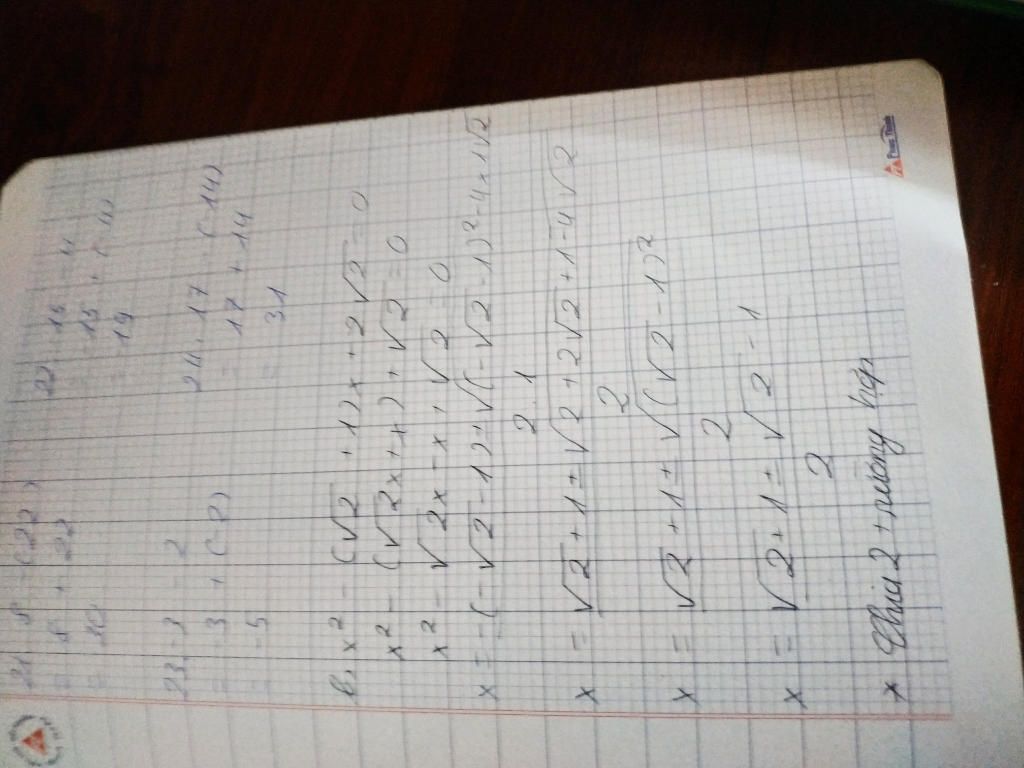 21. 8 - (22)
= 8 + 22
= 30
22. 15 - 4
= 15 + (-4)
= 19
23. -3 - 2
= -3 + (-2)
= -5
24. 17 - (-14)
= 17 + 14
= 31
b, x² - (√2 + 1)x + 2√2 = 0
x² - (√2x + x) + √2 = 0
x² - √2x - x + √2 = 0
x = -(-√2 - 1) ± √(-√2 - 1)² - 4 x 1√2
2.1
x = √2 + 1 ± √2 + 2√2 + 1 - 4√2
2
x = √2 + 1 ± √(√2 - 1)²
2
x = √2 + 1 ± √2 - 1
2
* Chia 2 trường hợp
Phong Thạnh